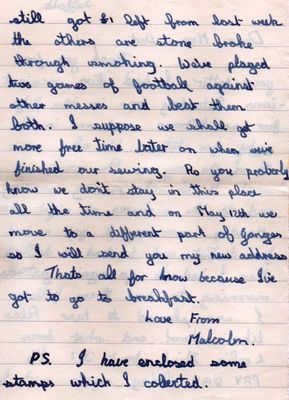 still got £1 left from last week
the others are stone broke
through smoking. We've played
two games of football against
other messes and beat them
both. I suppose we shall get
more free time later on when we've
finished our sewing. As you proberly
know we don't stay in this place
all the time and on May 12th we
move to a different part of Ganges
so I will send you my new address
Thats all for know because I've
got to go to breakfast.
Love From
Malcolm.
P.S. I have enclosed some
stamps which I colected.